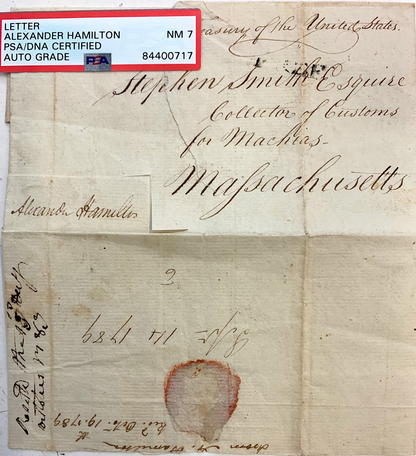 LETTER
ALEXANDER HAMILTON NM 7
PSA/DNA CERTIFIED
AUTO GRADE PSA 84400717
Treasury of the United States.
Stephen Smith Esquire
Collector of Customs
for Machias-
Maſsachusetts
Alexander Hamilton
6
Sept 14 1789
Octr. 19. 1789